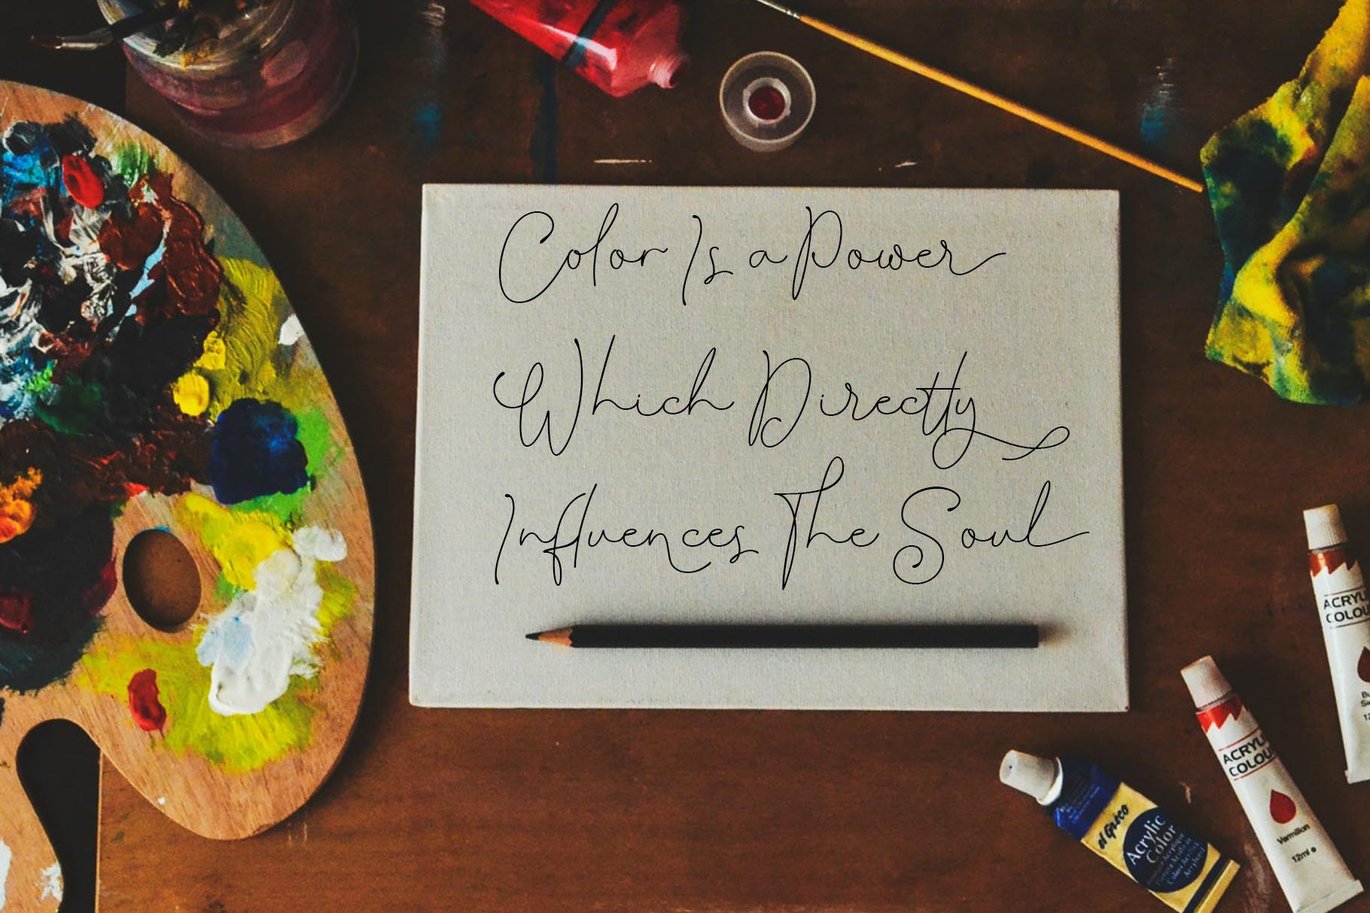 Color Is a Power
Which Directly
Influences The Soul
ACRYL
COLOU
ACRYL
COLOU
Vermilion
12ml e
el Greco
Acrylic
Color